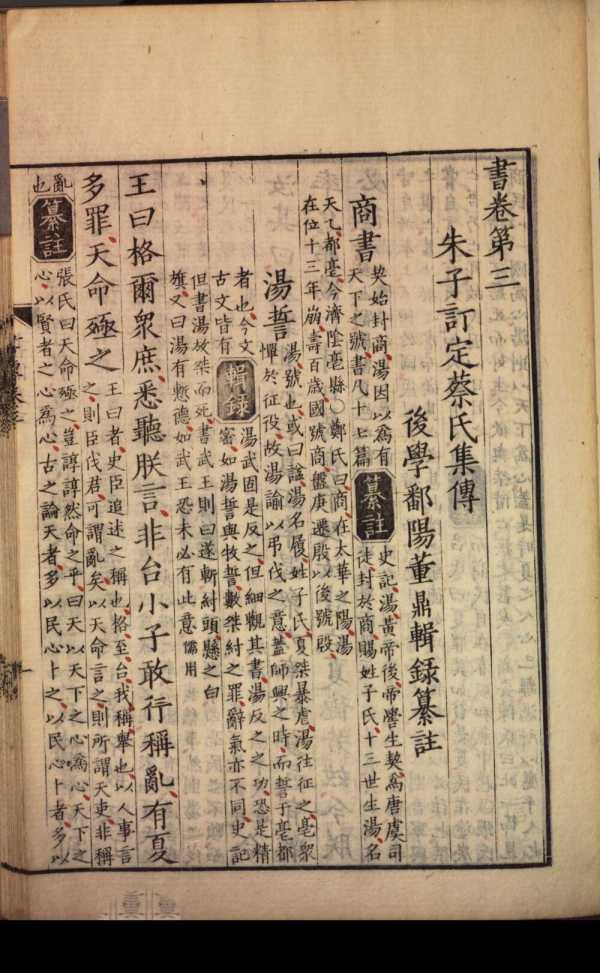 書卷第三
朱子訂定蔡氏集傳
後學鄱陽董鼎輯録纂註
商書
契始封商湯因以爲有
天下之號書凡十七篇
纂註
史記湯黃帝後帝嚳生契爲唐虞司
徒封於商賜姓子氏十三世生湯名
天乙都亳今濟陰亳縣○鄭氏曰商在太華之陽湯
在位十三年崩壽百歲國號商盤庚遷殷以後號殷
湯誓
湯號也或曰諡湯名履姓子氏夏桀暴虐湯往征之亳衆
憚於征役故湯諭以弔伐之意蓋師興之時而誓于亳都
者也今文
古文皆有
輯録
湯武固是反之但細觀其書湯反之之功恐是精
密如湯誓與牧誓數桀紂之罪辭氣亦不同史記
但書湯放桀而死書武王則曰遂斬紂頭懸之白
旗又曰湯有慙德如武王恐未必有此意儒用
王曰格爾衆庶悉聽朕言非台小子敢行稱亂有夏
多罪天命殛之
王曰者史臣追述之稱也格至台我稱舉也以人事言
之則臣伐君可謂亂矣以天命言之則所謂天吏非稱
亂
也
纂註
張氏曰天命殛之豈諄諄然命之乎曰天以天下之心爲心天下之
心以賢者之心爲心古之論天者多以民心卜之以民心卜者多以